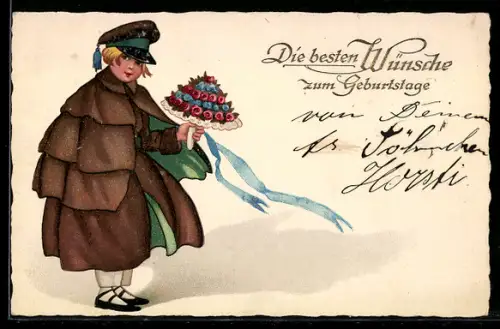 Die besten Wünsche
zum Geburtstage
von Deinem
Söhnchen
Horsti.